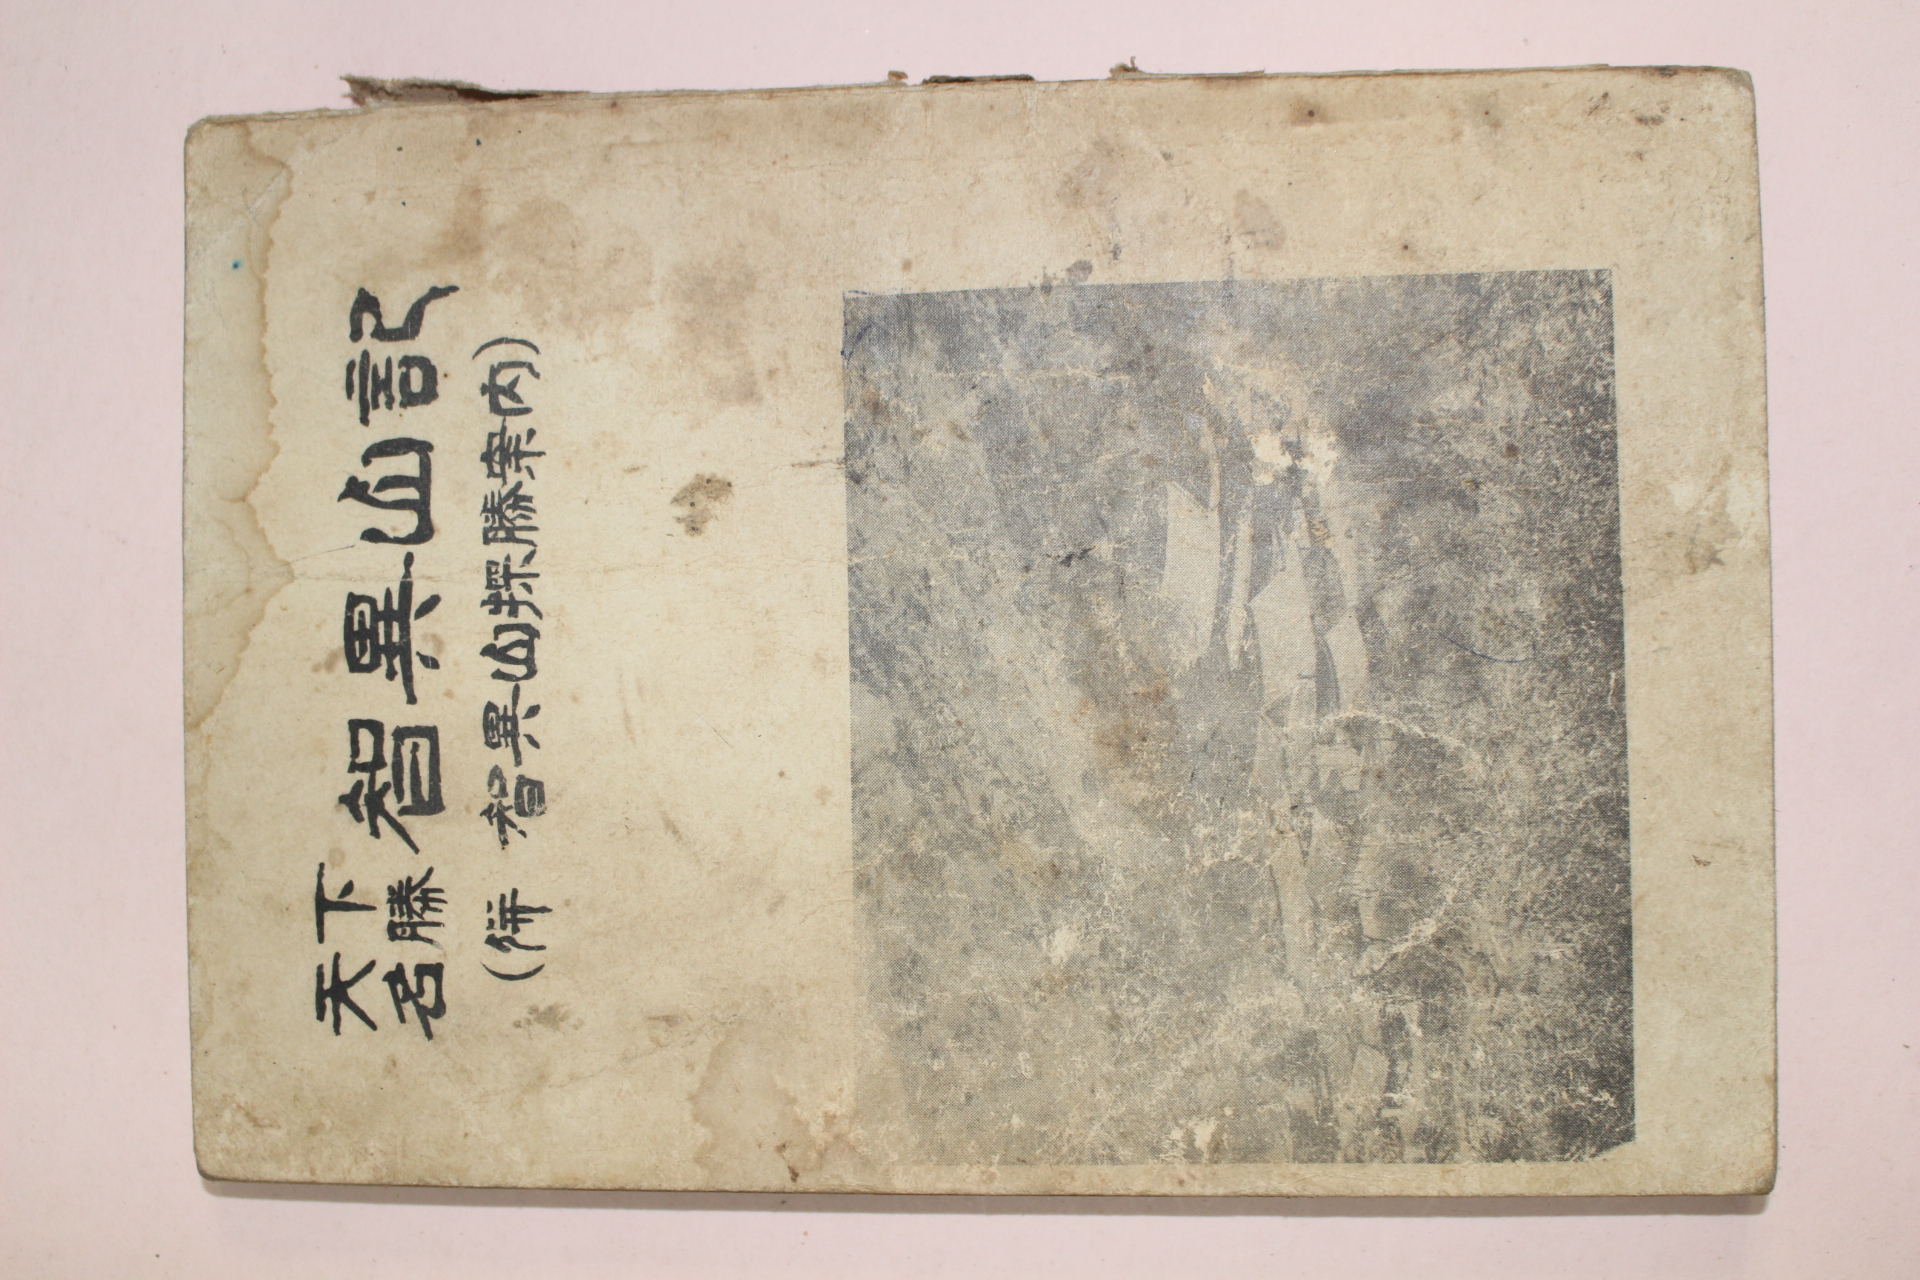 天下
名勝 智異山記
(併 智異山探勝案內)